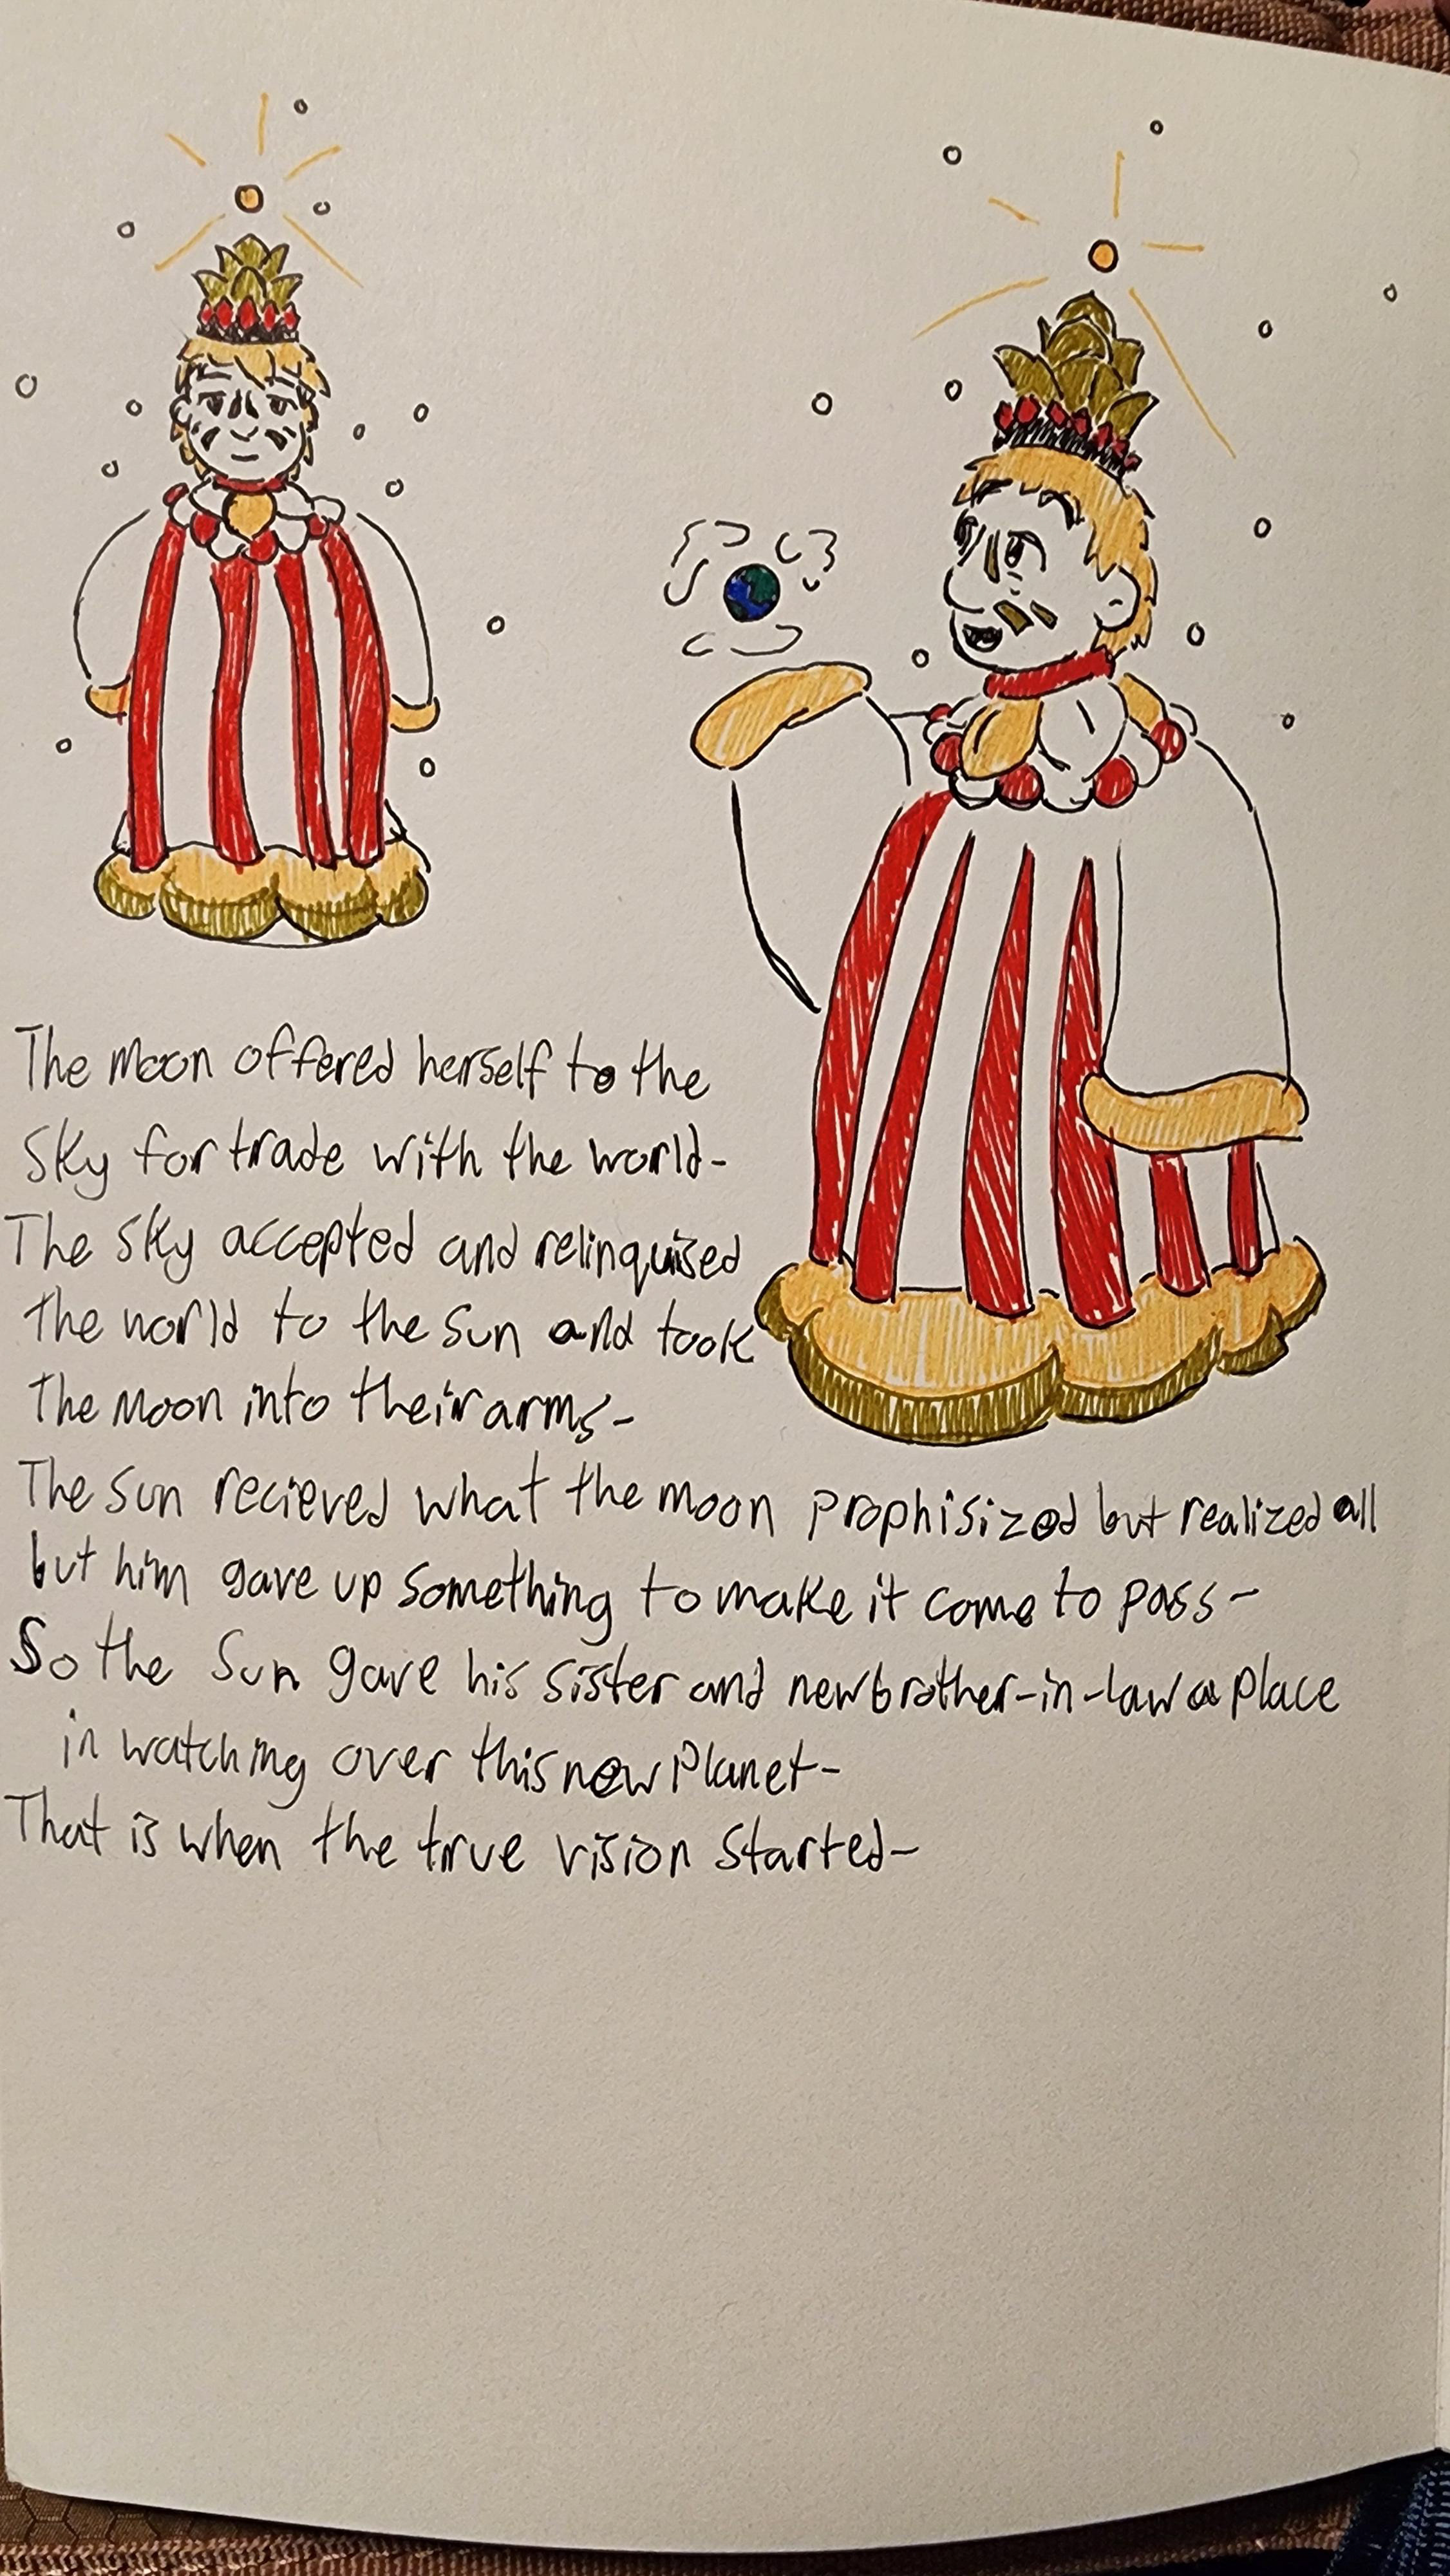 The Moon offered herself to the
Sky for trade with the world-
The Sky accepted and relinquised
the world to the Sun and took
The Moon into their arms-
The Sun recieved what the moon prophisized but realized all
but him gave up something to make it come to pass-
So the Sun gave his sister and new brother-in-law a place
in watching over this new Planet-
That is when the true vision started-